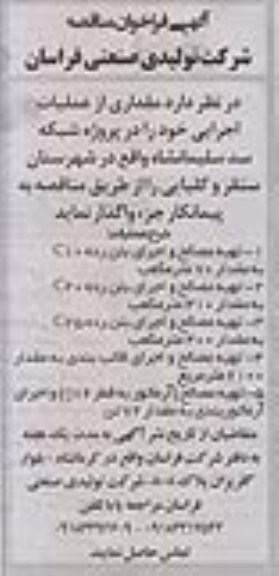 آگهی فراخوان مناقصه
شرکت تولیدی صنعتی فراسان
در نظر دارد مقداری از عملیات
اجرایی خود را در پروژه شبکه
سد سلیمانشاه واقع در شهرستان
سنقر و کلیایی را از طریق مناقصه به
پیمانکار جزء واگذار نماید
شرح عملیات:
۱- تهیه مصالح و اجرای بتن رده C۱۰
به مقدار ۷۰ مترمکعب
۲- تهیه مصالح و اجرای بتن رده C۲۰
به مقدار ۳۱۰ مترمکعب
۳- تهیه مصالح و اجرای بتن رده C۲۵
به مقدار ۳۰۰ مترمکعب
۴- تهیه مصالح و اجرای قالب بندی به مقدار
۲۱۰۰ مترمربع
۵- تهیه مصالح (آرماتور به قطر و اجرای
آرماتوربندی به مقدار تن
متقاضیان از تاریخ نشر آگهی به مدت یک هفته
به دفتر شرکت فراسان واقع در کرمانشاه - بلوار
پلاک شرکت تولیدی صنعتی
فراسان مراجعه یا با تلفن
تماس حاصل نمایند